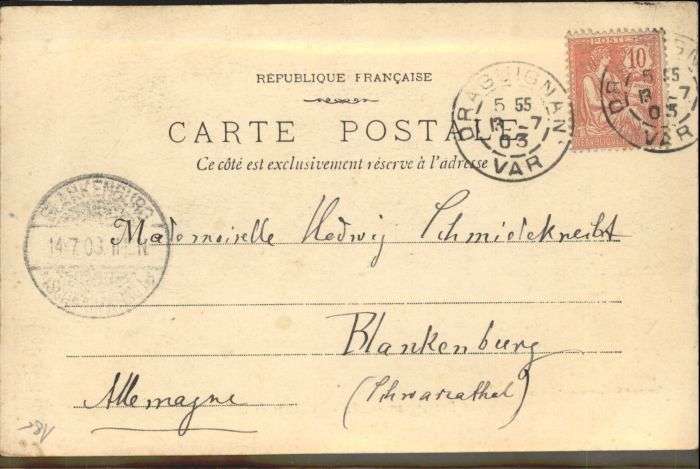 RÉPUBLIQUE FRANÇAISE
CARTE POSTALE
Ce côté est exclusivement réservé à l'adresse
POSTES
10
DRAGUIGNAN
5 55
13 - 7
03
VAR
DRAGUIGNAN
5 55
13 - 7
03
VAR
BLANKENBURG
14 7 03
Mademoiselle Hedwig Schmiedeknecht
Blankenburg
Allemagne (Schwarzathal)